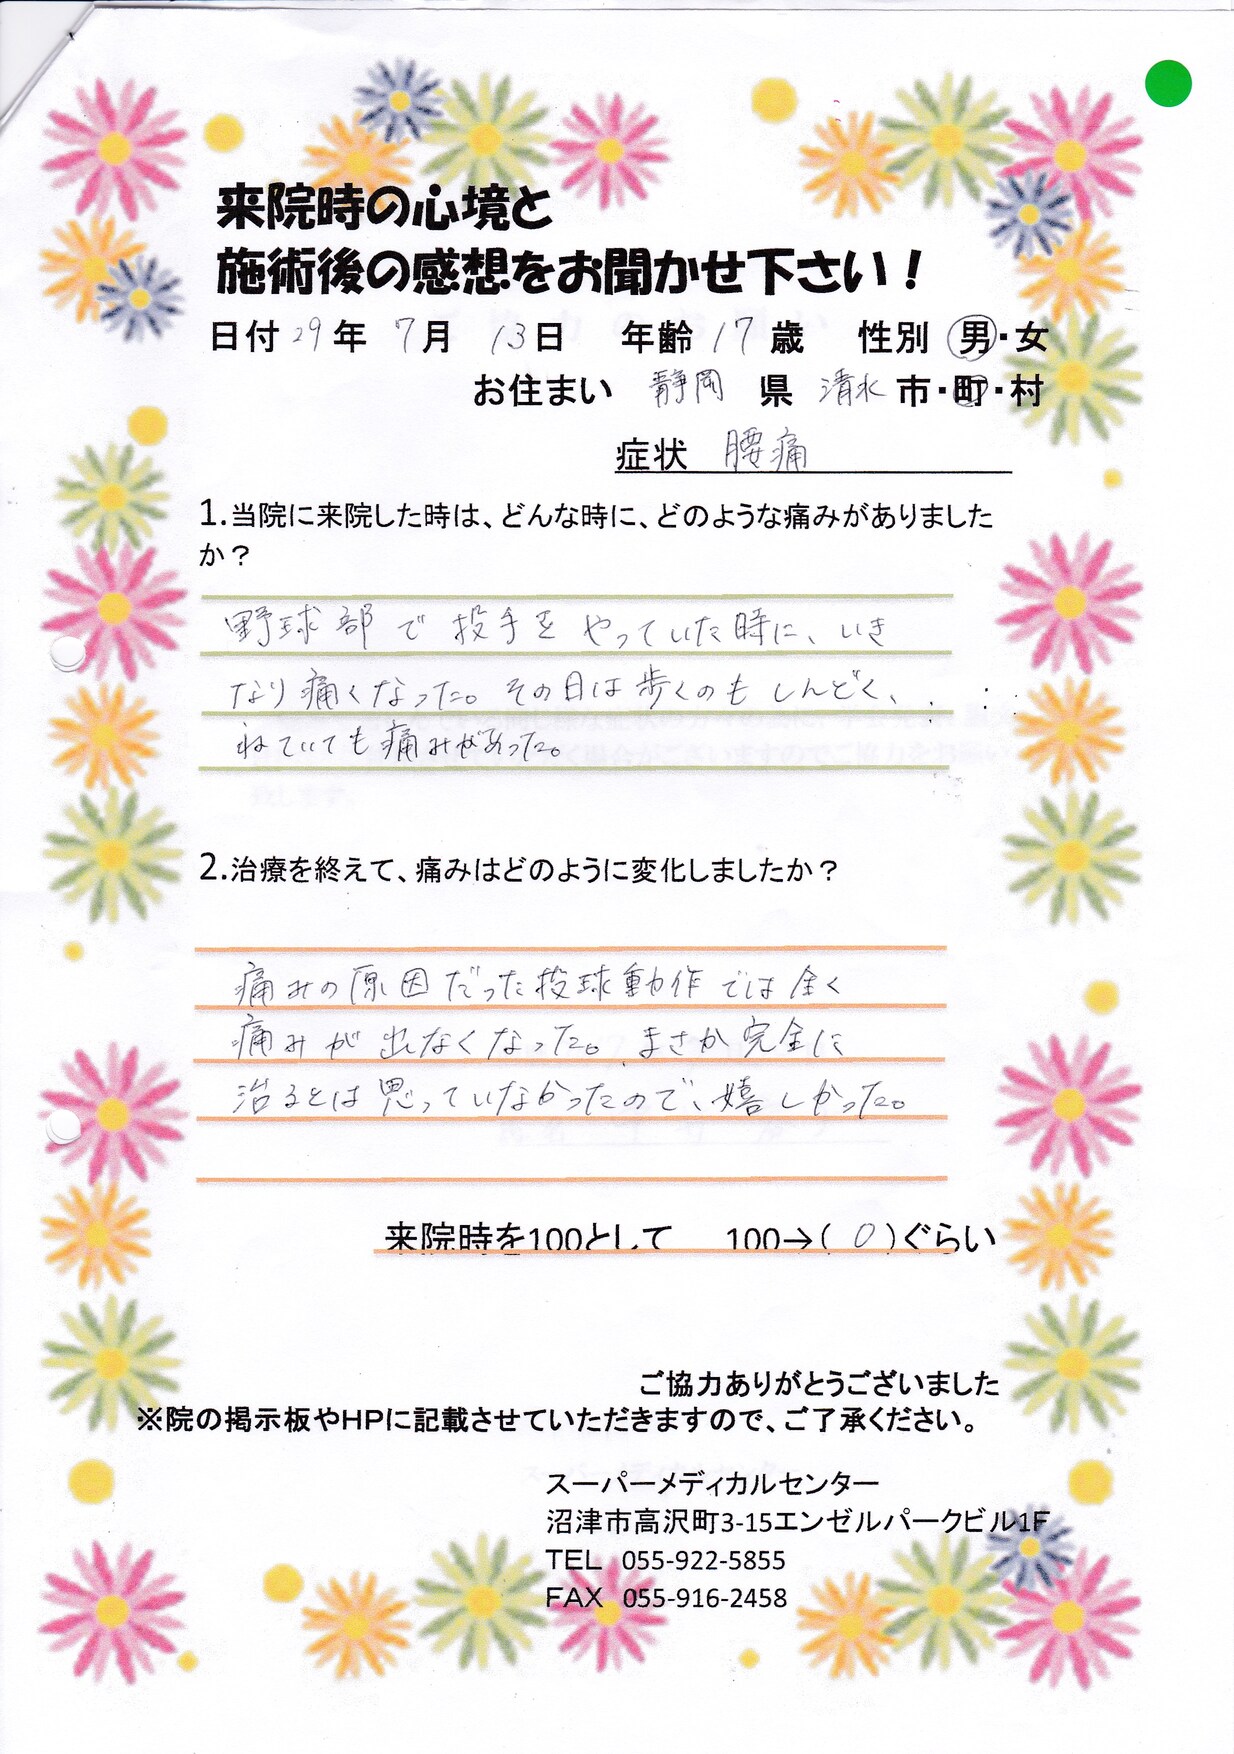 来院時の心境と
施術後の感想をお聞かせ下さい！
日付 29年 7月 13日 年齢 17歳 性別 男・女
お住まい 静岡 県 清水 市・町・村
症状 腰痛
1.当院に来院した時は、どんな時に、どのような痛みがありました
か？
野球部で投手をやっていた時に、いき
なり痛くなった。その日は歩くのもしんどく、
ねていても痛みがあった。
2.治療を終えて、痛みはどのように変化しましたか？
痛みの原因だった投球動作では全く
痛みが出なくなった。まさか完全に
治るとは思っていなかったので、嬉しかった。
来院時を100として 100→( 0 )ぐらい
ご協力ありがとうございました
※院の掲示板やHPに記載させていただきますので、ご了承ください。
スーパーメディカルセンター
沼津市高沢町3-15エンゼルパークビル1F
TEL 055-922-5855
FAX 055-916-2458